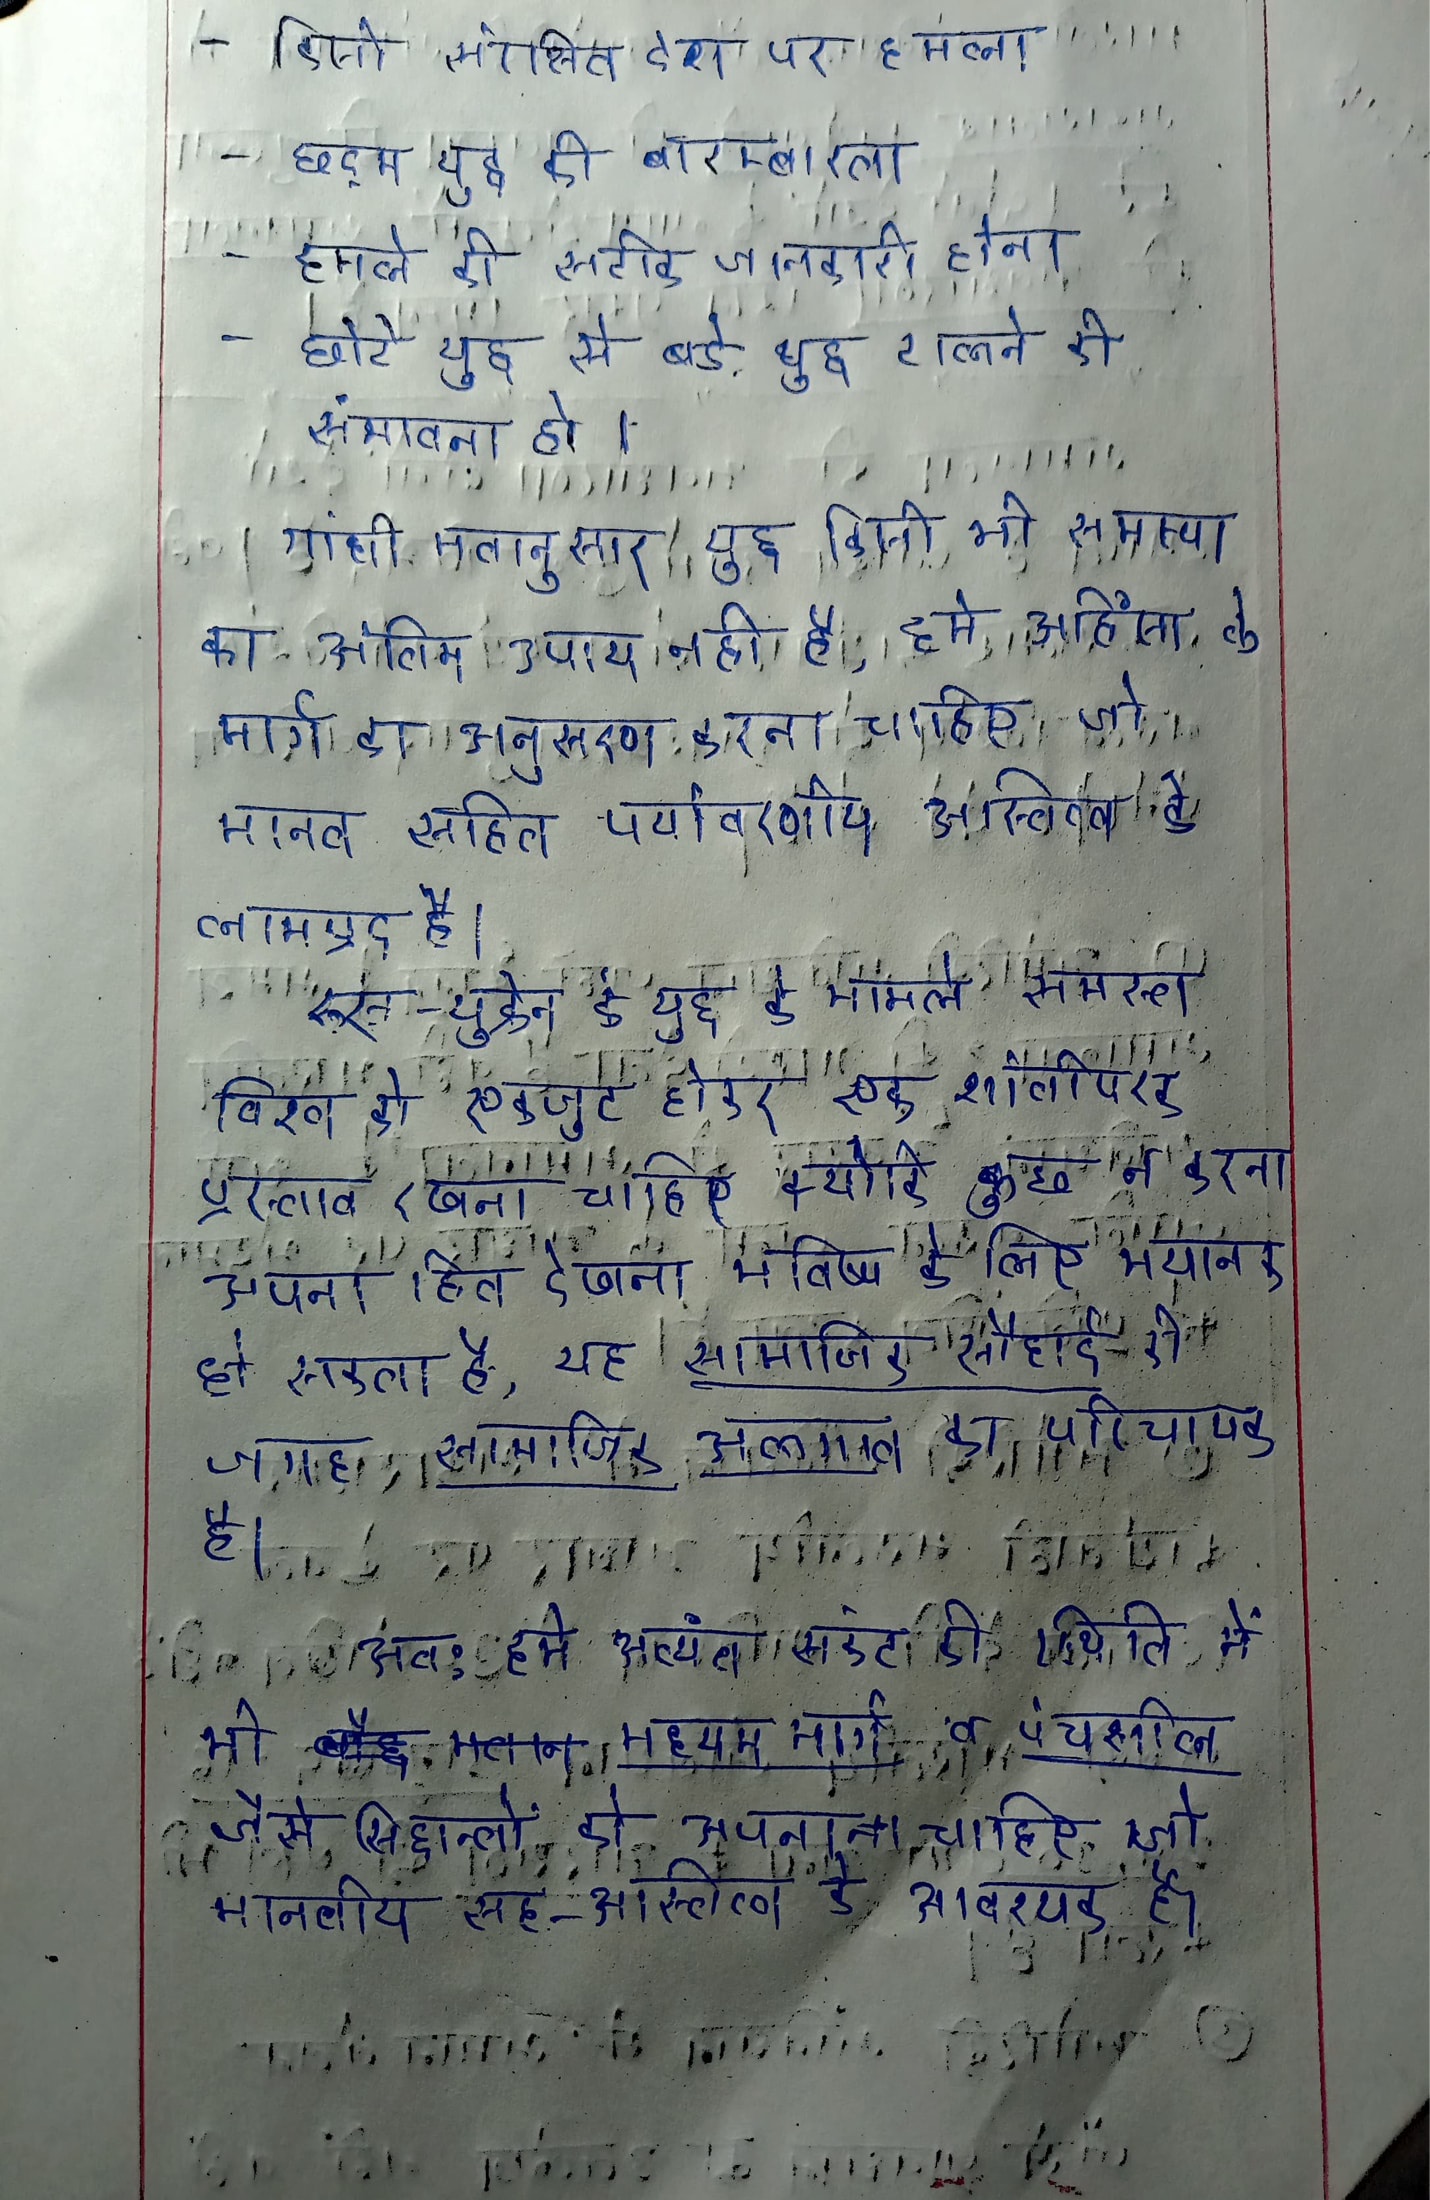 - किसी संरक्षित देश पर हमला
- छद्म युद्ध की बारम्बारता
- हमले की सटीक जानकारी होना
- छोटे युद्ध से बडे युद्ध टालने की
संभावना हो ।
गांधी मतानुसार युद्ध किसी भी समस्या
का अंतिम उपाय नही है, हमे अहिंसा के
मार्ग का अनुसरण करना चाहिए जो
मानव सहित पर्यावरणीय अस्तित्व के
लाभप्रद है।
रूस-युक्रेन के युद्ध के मामले समस्त
विश्व को एकजुट होकर एक शांतीपरक
प्रस्ताव रखना चाहिए क्योकि कुछ न करना
अपना हित देखना भविष्य के लिए भयानक
हो सकता है, यह सामाजिक सौहार्द की
जगह सामाजिक अलगाव का परिचायक
है।
अतः हमे अत्यंत सकंट की स्थिति में
भी बौद्ध मतान मध्यम मार्ग व पंचशील
जैसे सिद्वान्तों को अपनाना चाहिए जो
मानवीय सह-अस्तित्व के आवश्यक है।